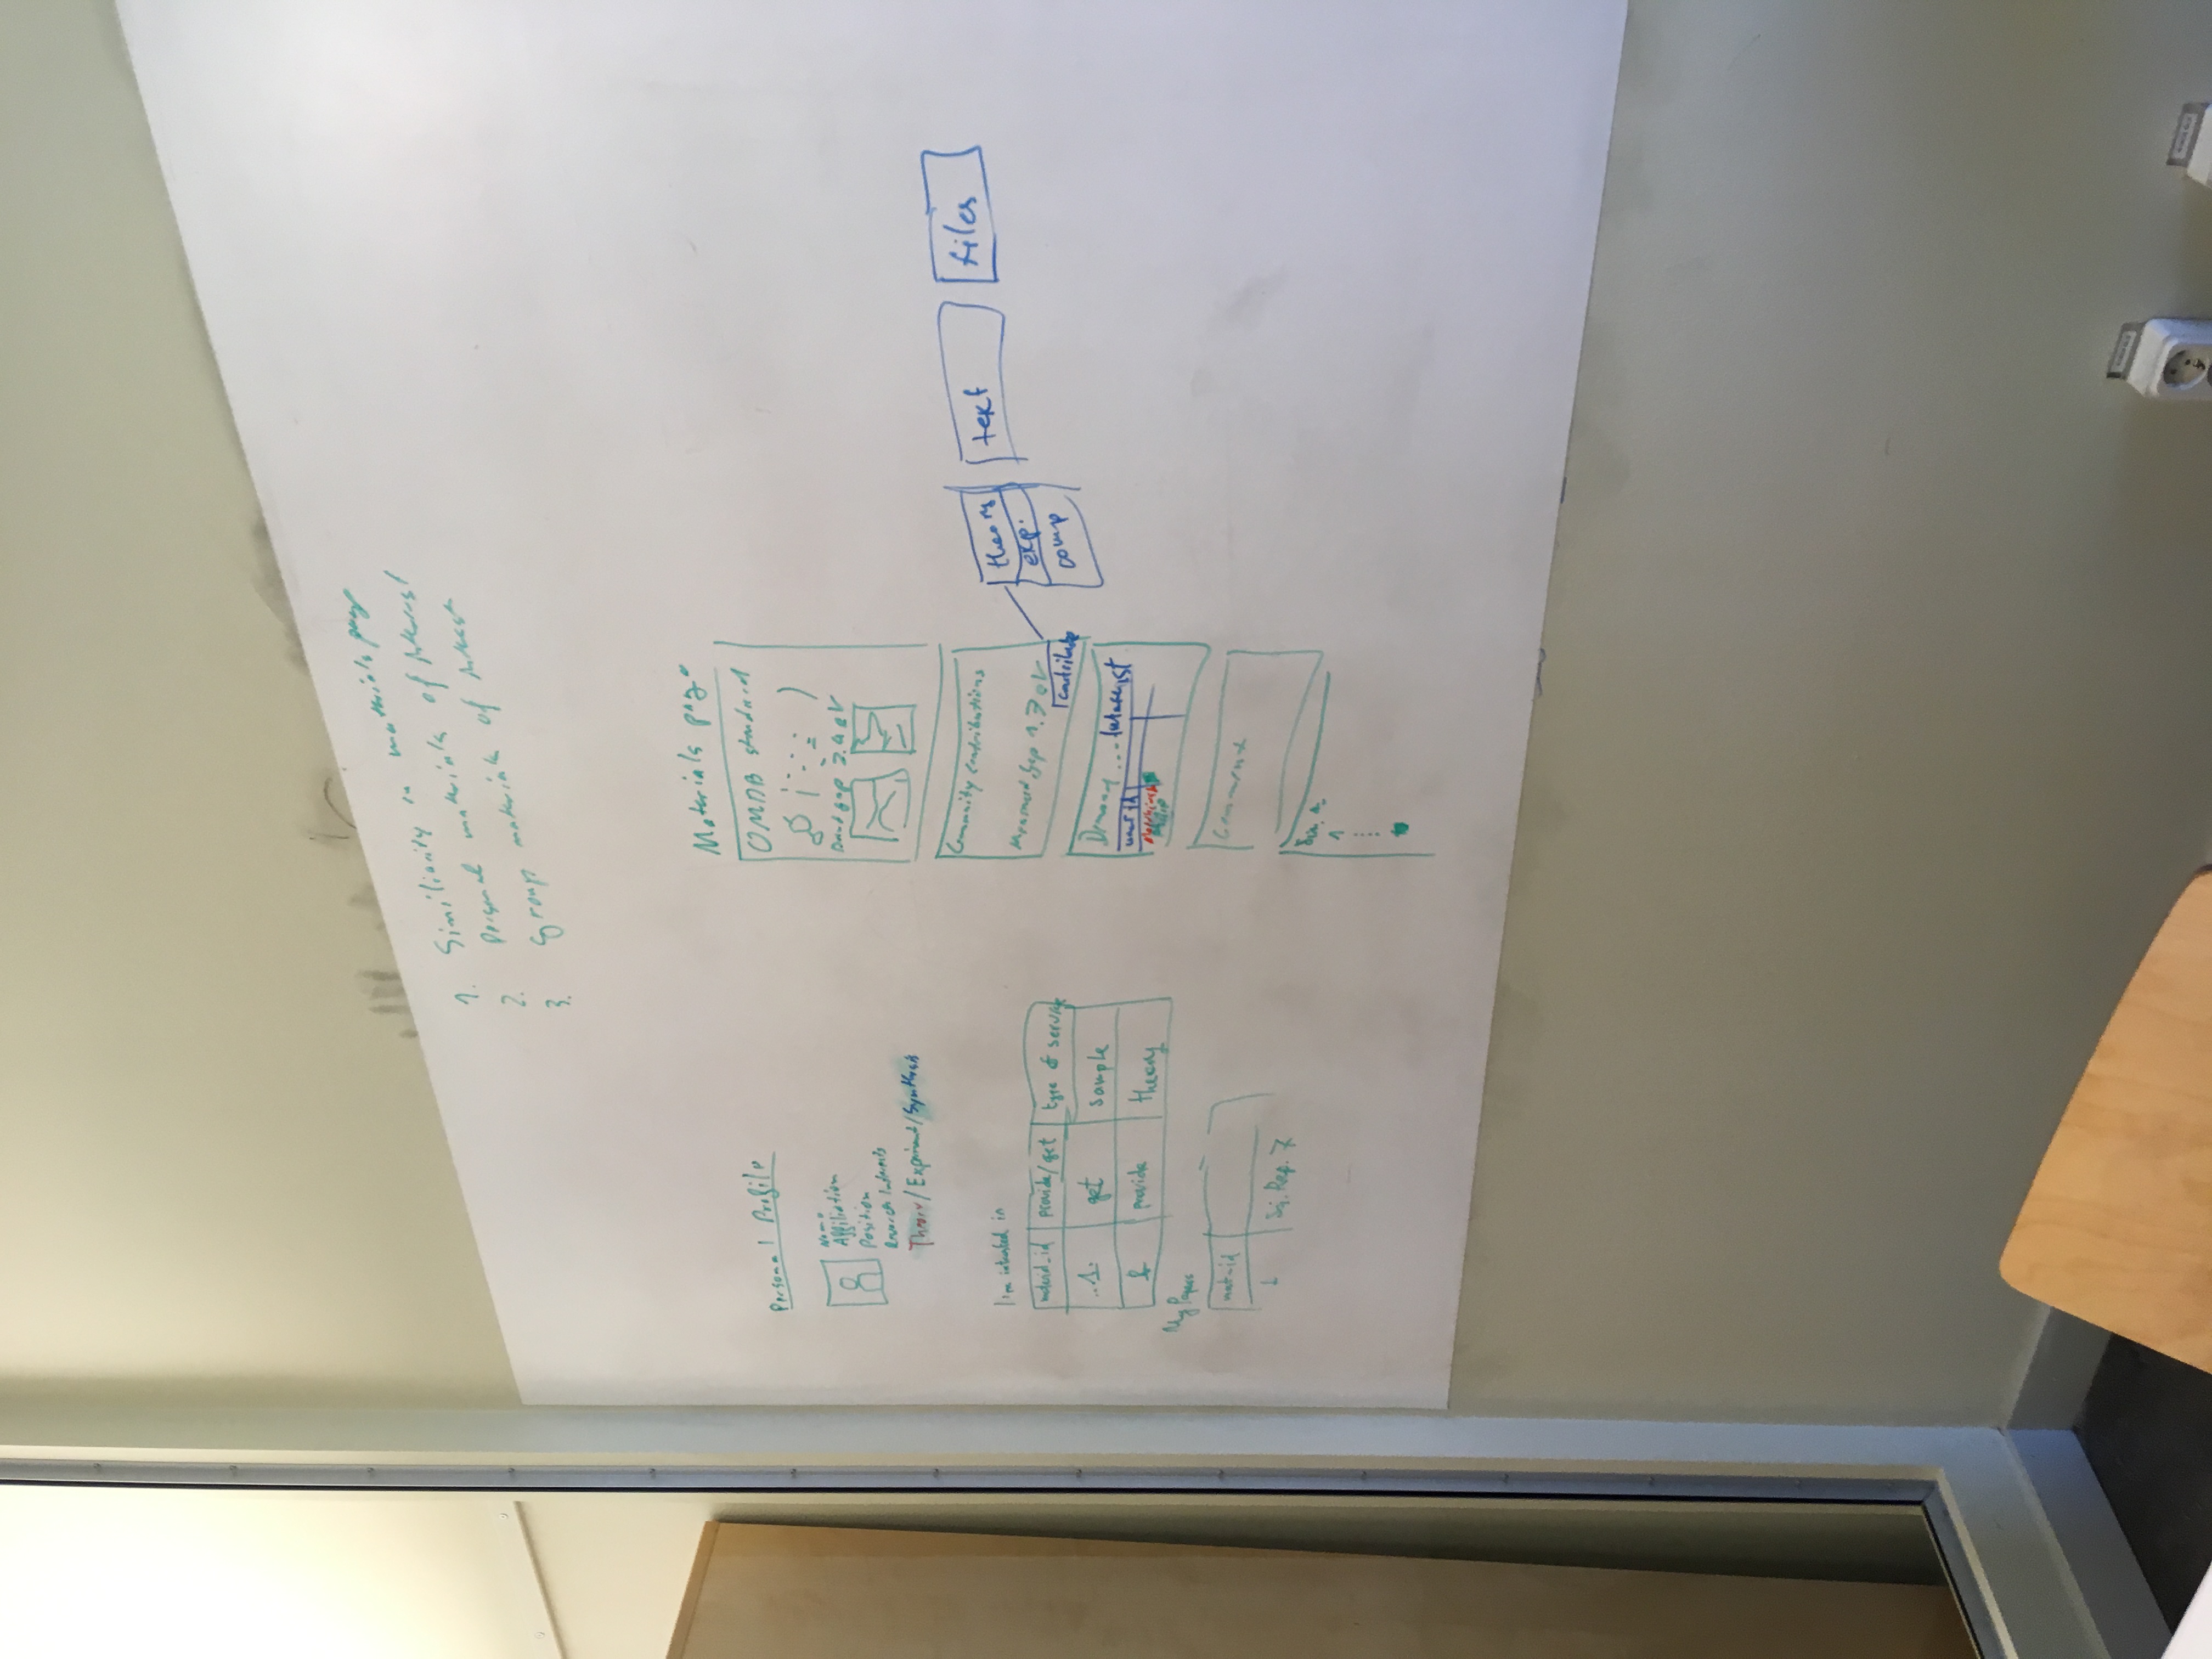 1. Similiarity in materials page
2. Personal materials of interest
3. Group materials of interest
Personal Profile
Name
Affiliation
Position
Research Interests
Theory/Experiment/Synthesis
I'm intrested in
material_id provide/get type of service
..1. get sample
provide theory
My Papers
mat-id
1 Sci. Rep. 7
Materials page
OMDB standard
Band gap 3.4 eV
Community contributions
Measured gap 1.7 eV
contribute
theory
exp.
comp
text
files
Demand ... Interest
user id
Comment
1